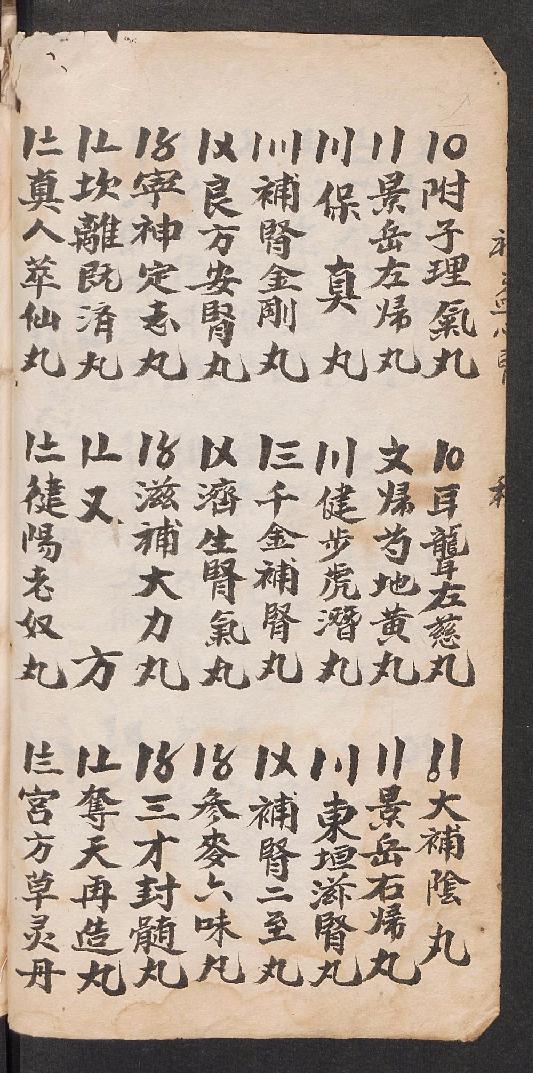 〡〇附子理氣丸
〡〇耳聾左慈丸
〡〡大補陰丸
〡〡景岳左帰丸
文帰芍地黃丸
〡〡景岳右帰丸
〡〢保真丸
〡〢健步虎潛丸
〡〢東垣滋腎丸
〡〣補腎金剛丸
〡三千金補腎丸
〡〤補腎二至丸
〡〤良方安腎丸
〡〤濟生腎氣丸
〡〥參麥六味丸
〡〥寧神定志丸
〡〥滋補大力丸
〡〥三才封髓丸
〡〦坎離既済丸
〡〦又方
〡〦奪天再造丸
〡〧真人萃仙丸
〡〧健陽老奴丸
〡〨宮方草灵丹